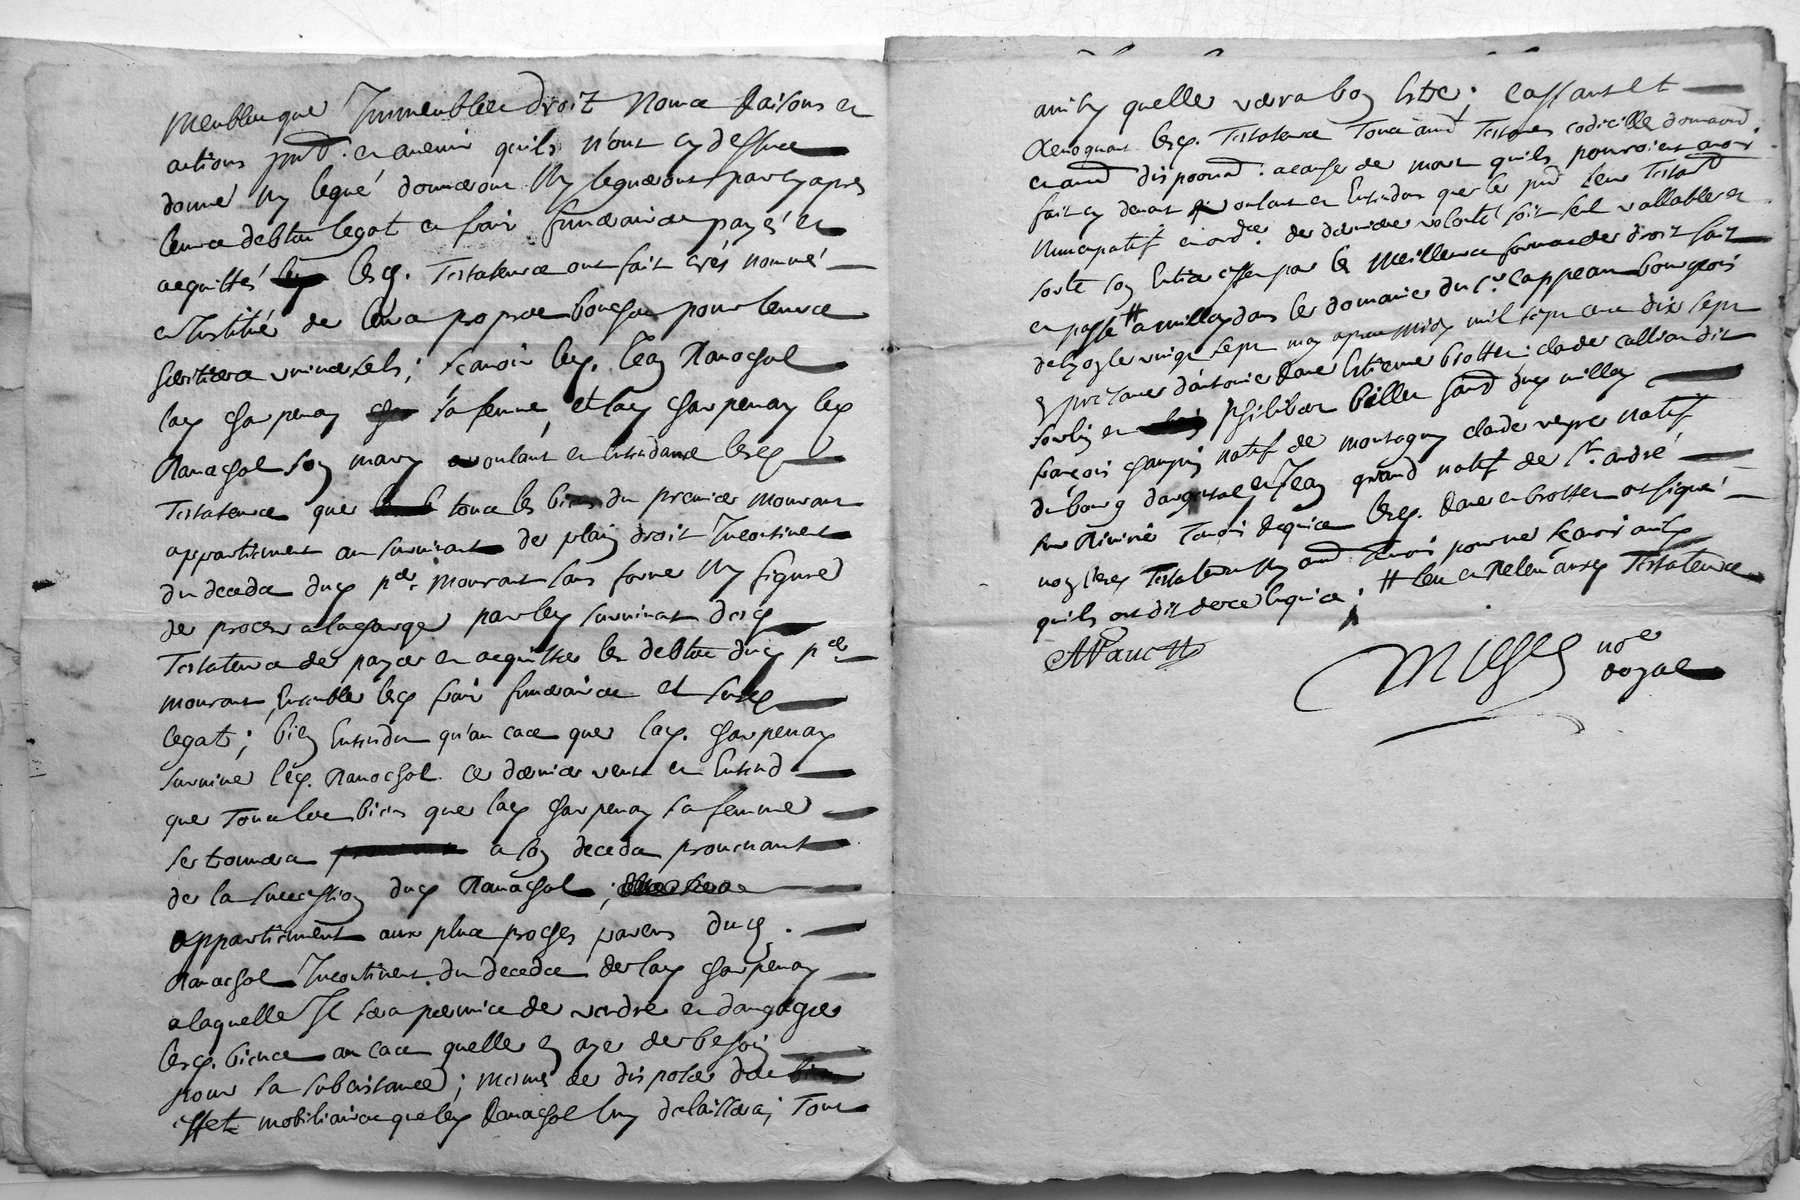 meubles que Immeubles droit noms Raisons et
actions pnt. et avenir quils n'ont cy dessus
donné ny legué donneront ny legueront par cy apres
leurs debtes legat et frais funeraires payés et
acquittés lesd. Testateurs ont fait crés nommé
et Institué de leurs propres bouches pour leurs
heritiers universels; scavoir led. Jean Ranachol
lad charpenay sa femme, et lad charpenay led
Ranachol son mary voulant et entendant lesd
Testateurs que tous les biens du premier mourant
appartiennent au survivant de plain droit Incontinent
du deceds dud per. mourant sans forme ny figure
de proces a la charge par led survivant desd
Testateurs de payer et acquitter les debtes dud per
mourant, Ensemble lesd frais funeraires et susd
legat; bien Entendu qu'au cas que lad. charpenay
survive led. Ranachol ce dernier veut et Entend
que tous les biens que lad charpenay sa femme
se trouvera a son deceds provenant
de la succession dud Ranachol;
appartiennent aux plus proches parens dud.
Ranachol Incontinent du deceds de lad charpenay
a laquelle Il sera permis de vendre et dangager
lesd. biens au cas quelle en aye de besoin
pour sa subcistance; mesme de disposer des
effets mobiliaires que led Ranachol luy delaissera; Tout
ainsy quelle verra bon estre; Cassant et
Revoquant lesd. Testateurs Tous aud Testames codicille donnaon.
et aud disposion. a cause de mort quils pouroient avoir
fait cy devant voulant et Entendan que le pnt leur Testant
Nuncupatif et ordre. de derniere volonté soit seul vallable et
sorte son Entier effet par les meilleures formes de droit fait
et passé # a milley dans le domaine du Sr. Cappeau bourgeois
de lyon le vingt sept may apres midy mil sept cens dix sept
en presence d'antoine Etienne brottet claude
et philiber billiet dud milley
françois champin natif de montagny claude veyre natif
du bourg dargental et Jean grand natif de St. andré
Temoins Requis lesd. et brottet ont signé
non lesd Testateurs ny aud Temoins pour ne scavoir
quils ont dit de ce Requis. # leu et Releu ausd Testateurs
noe
Royal